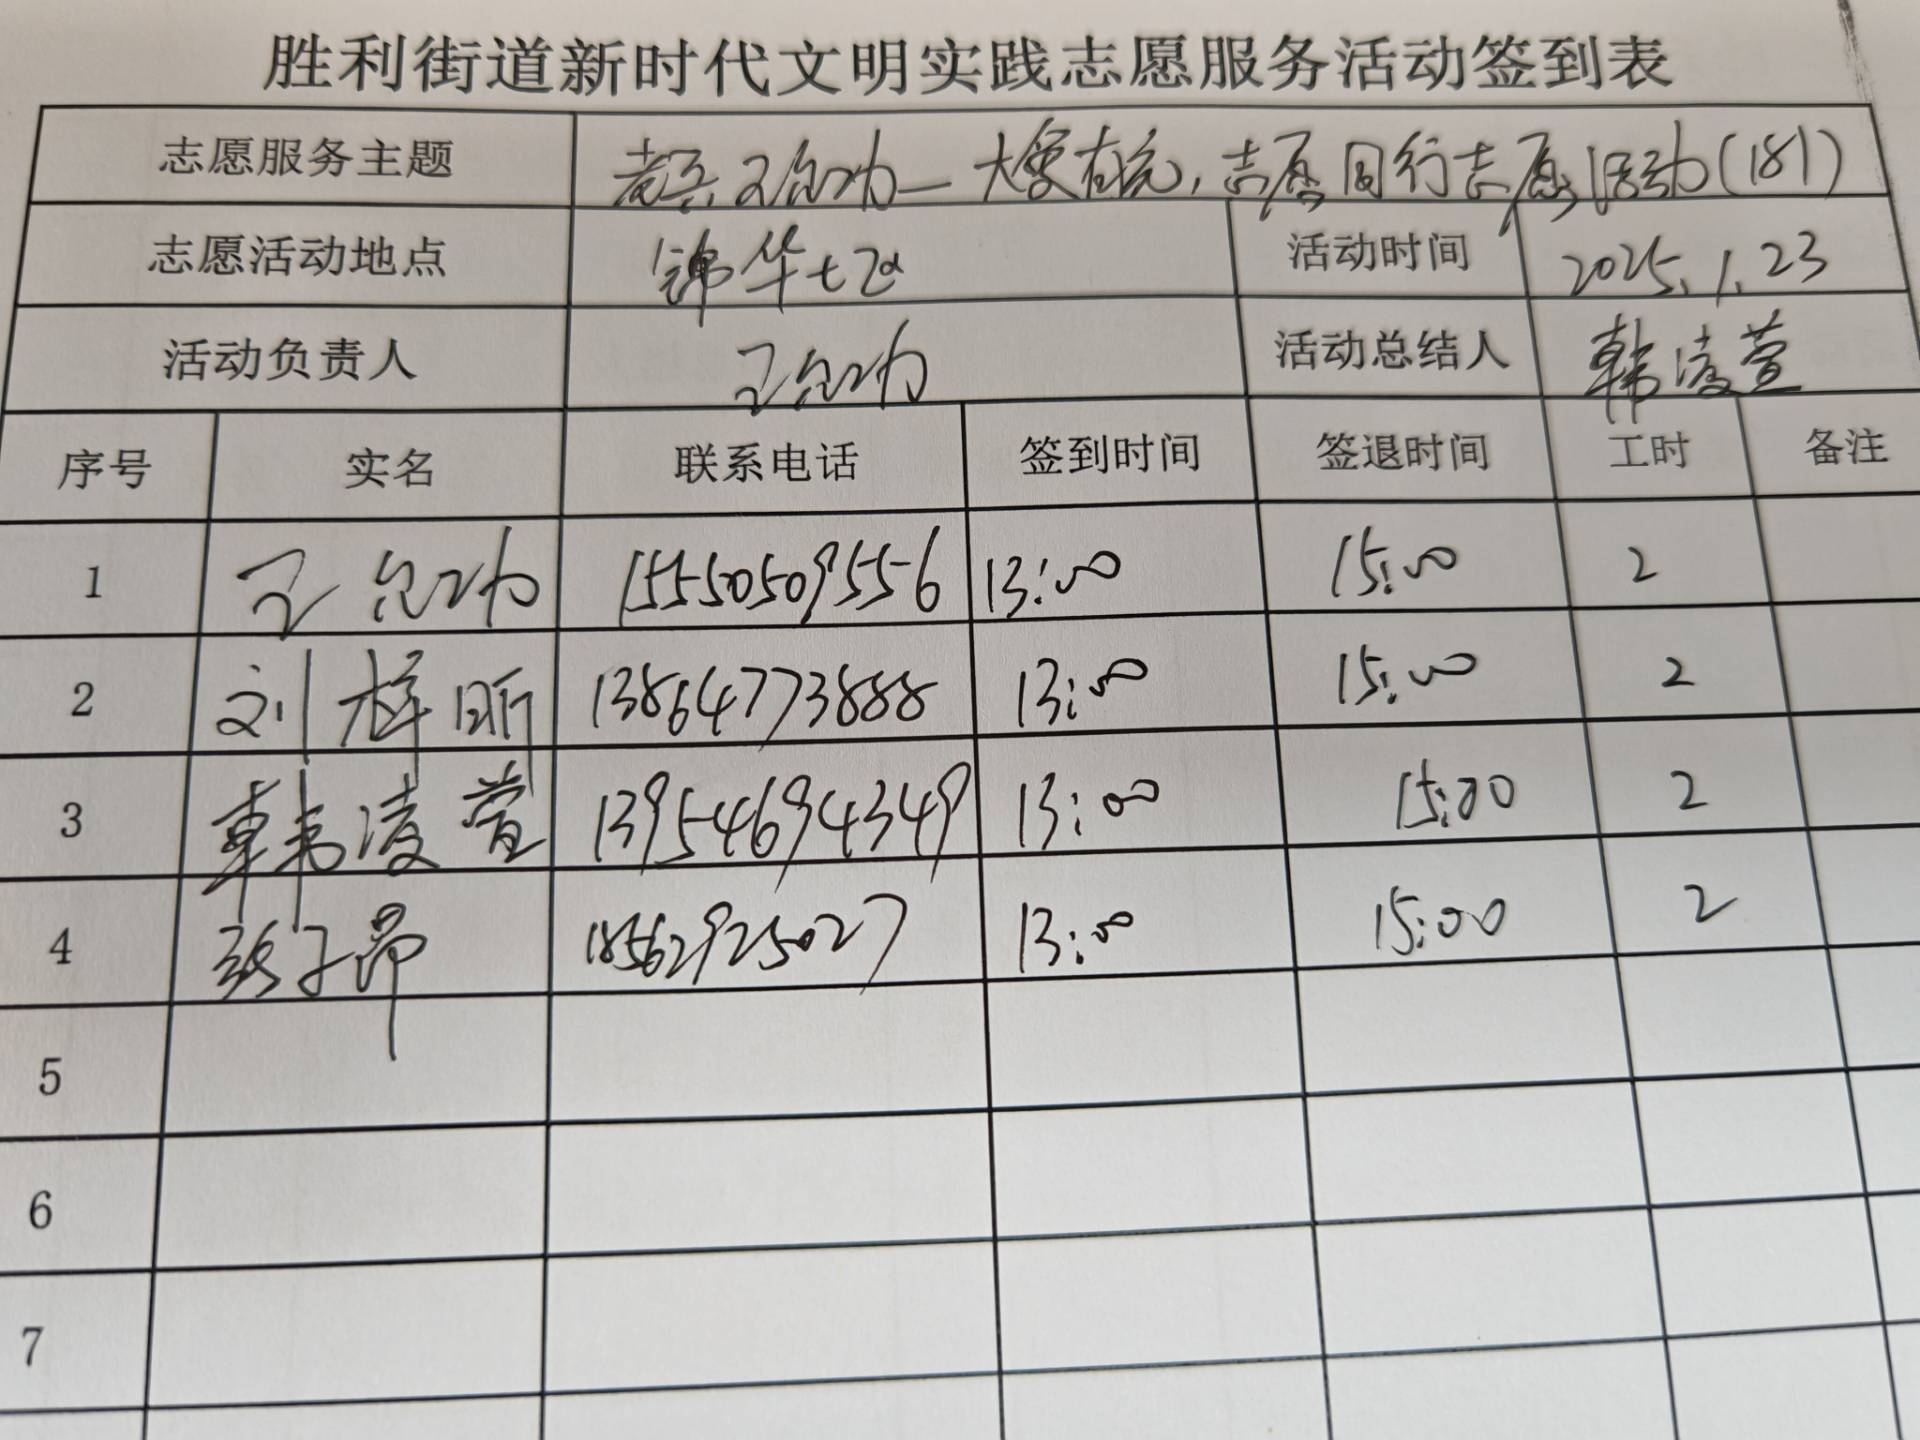 胜利街道新时代文明实践志愿服务活动签到表
志愿服务主题 老兵 — 大爱有光，志愿同行志愿活动(181)
志愿活动地点 锦华七区 活动时间 2025.1.23
活动负责人 活动总结人 韩凌萱
序号 实名 联系电话 签到时间 签退时间 工时 备注
1 15550509556 13:00 15:00 2
2 刘梓昕 13864773888 13:00 15:00 2
3 韩凌萱 13954694349 13:00 15:00 2
4 张子昂 18562925027 13:00 15:00 2
5
6
7